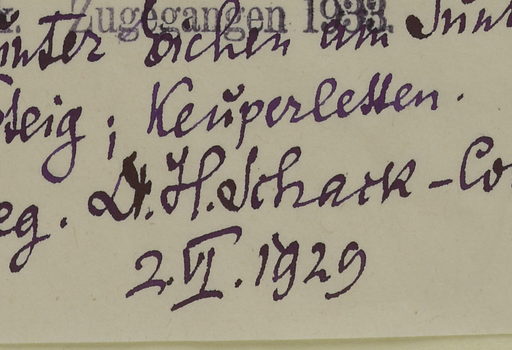 Zugegangen 1933.
unter Eichen am Sünt
steig; Keuperletten.
leg. Dr. H. Schack – Co
2.VI.1929